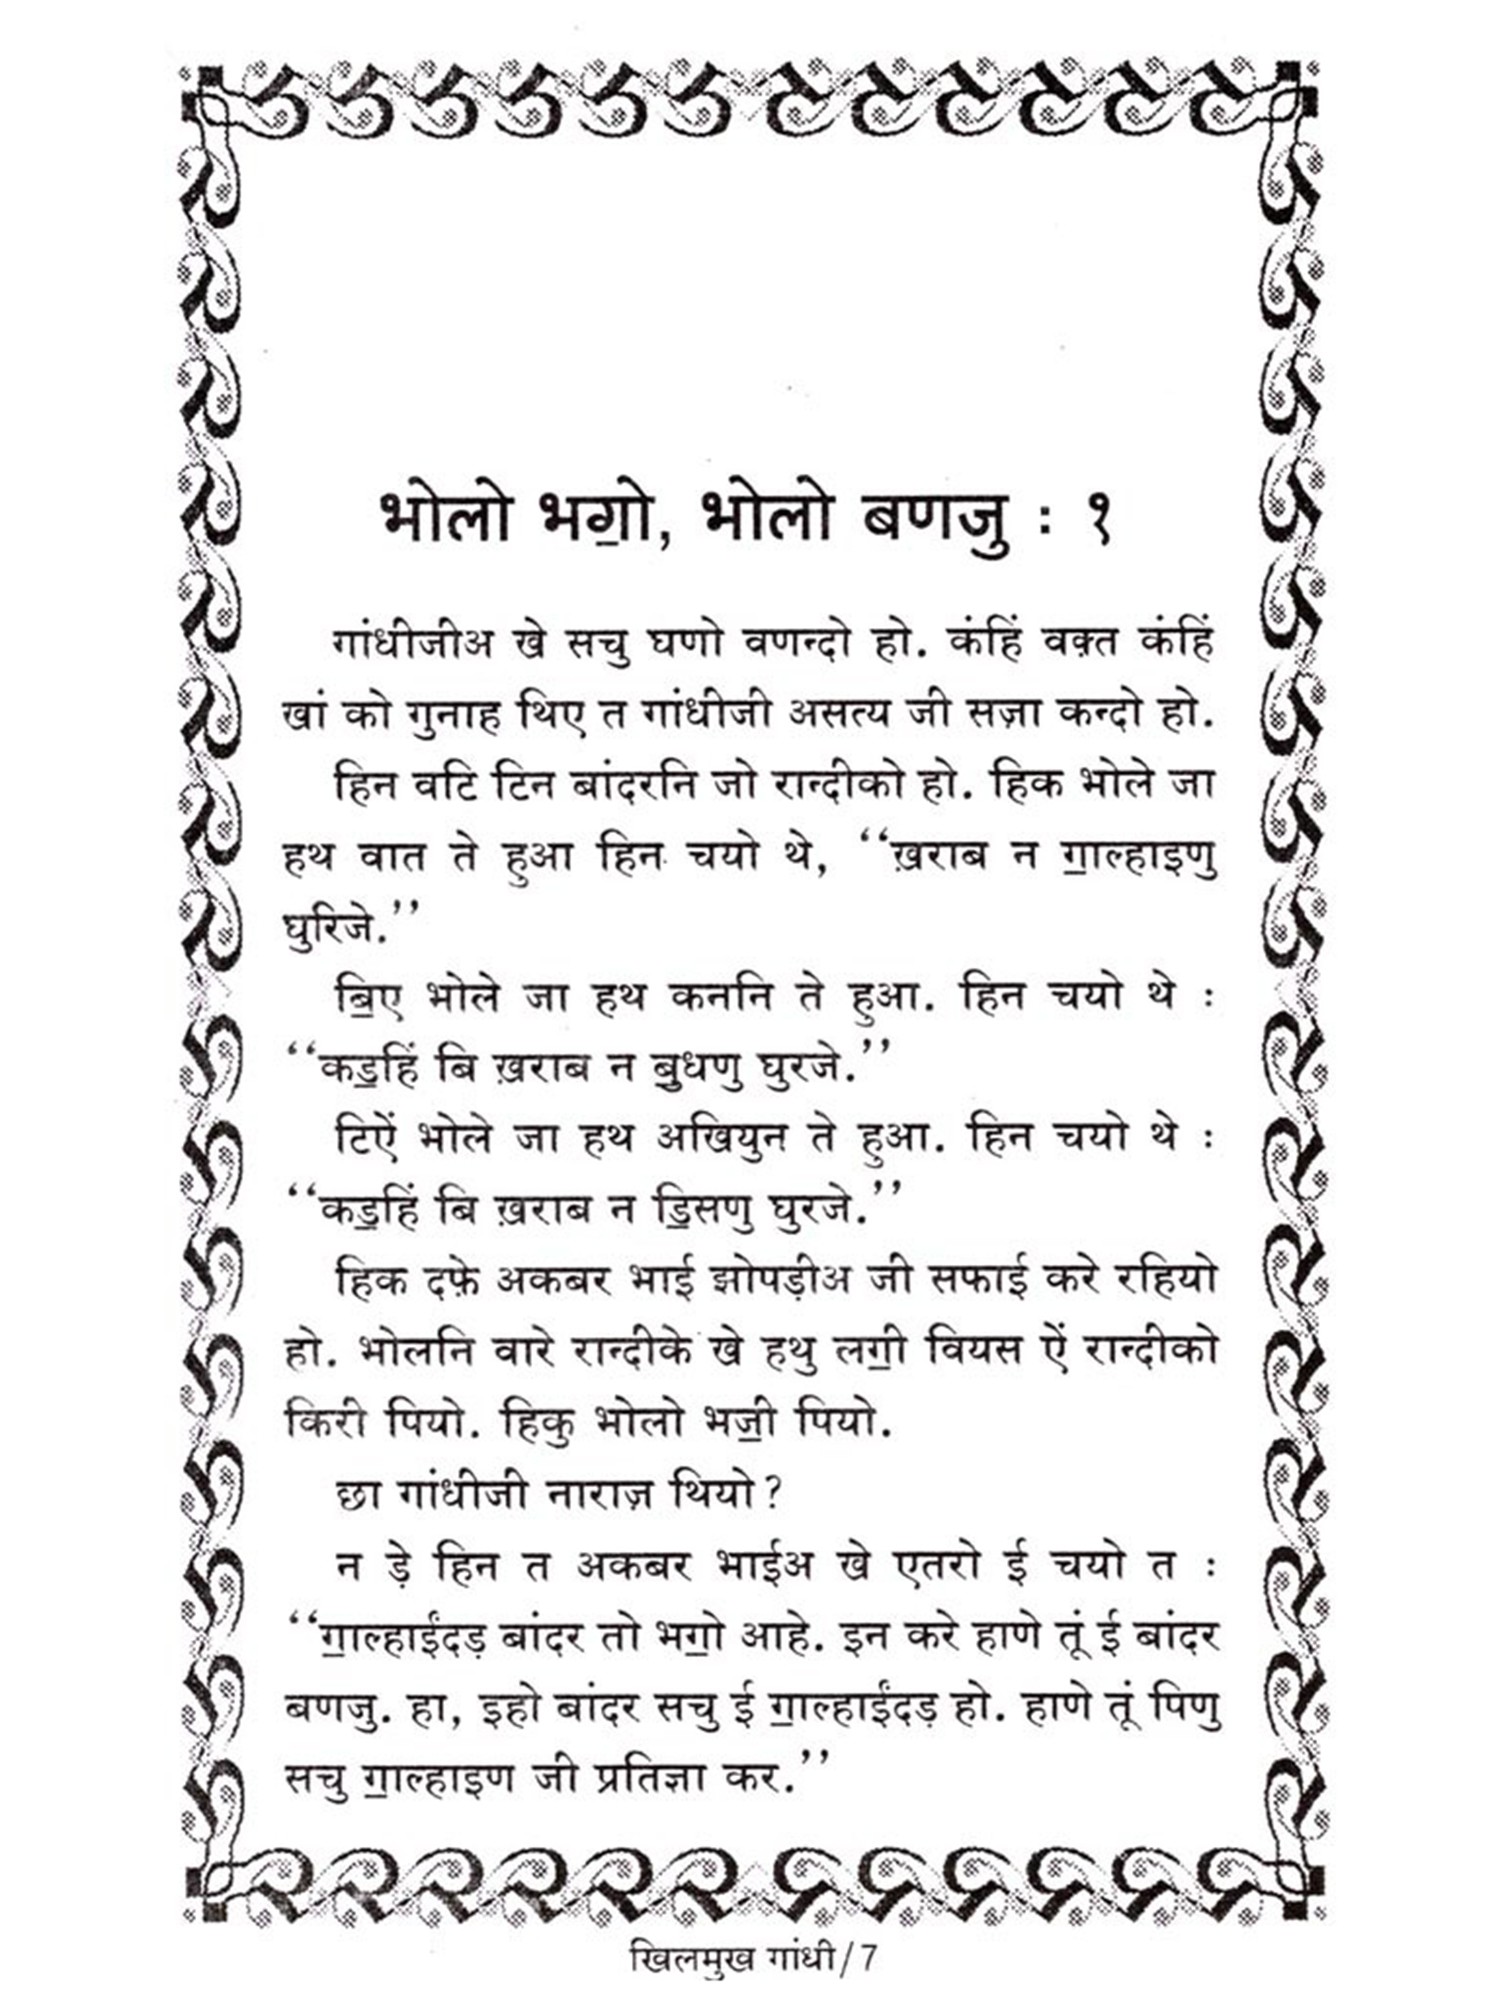 भोलो भॻो, भोलो बणजु : १
गांधीजीअ खे सचु घणो वणन्दो हो. कंहिं वक़्त कंहिं
खां को गुनाह थिए त गांधीजी असत्य जी सज़ा कन्दो हो.
हिन वटि टिन बांदरनि जो रान्दीको हो. हिक भोले जा
हथ वात ते हुआ हिन चयो थे, ‘‘ख़राब न ॻाल्हाइणु
घुरिजे.’’
ॿिए भोले जा हथ कननि ते हुआ. हिन चयो थे :
‘‘कॾहिं बि ख़राब न ॿुधणु घुरजे.’’
टिऐं भोले जा हथ अखियुन ते हुआ. हिन चयो थे :
‘‘कॾहिं बि ख़राब न ॾिसणु घुरजे.’’
हिक दफ़े अकबर भाई झोपड़ीअ जी सफाई करे रहियो
हो. भोलनि वारे रान्दीके खे हथु लॻी वियस ऐं रान्दीको
किरी पियो. हिकु भोलो भॼी पियो.
छा गांधीजी नाराज़ थियो?
न ड़े हिन त अकबर भाईअ खे एतरो ई चयो त :
‘‘ॻाल्हाईंदड़ बांदर तो भॻो आहे. इन करे हाणे तूं ई बांदर
बणजु. हा, इहो बांदर सचु ई ॻाल्हाईंदड़ हो. हाणे तूं पिणु
सचु ॻाल्हाइण जी प्रतिज्ञा कर.’’
खिलमुख गांधी/7